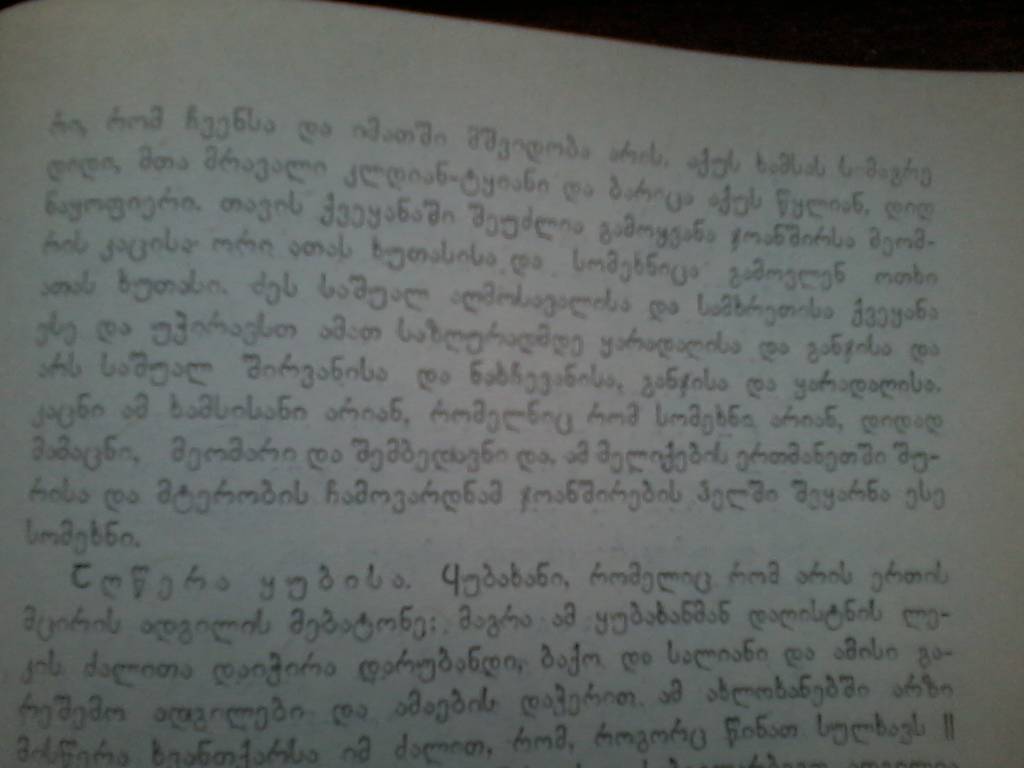 რი, რომ ჩვენსა და იმათში მშვიდობა არის. აქუს ხამსას სიმაგრე
დიდი, მთა მრავალი კლდიან-ტყიანი და ბარიცა აქუს წყლიან, დიდ
ნაყოფიერი. თავის ქვეყანაში შეუძლია გამოყვანა ჯოანშირსა მეომ-
რის კაცისა ორი ათას ხუთასისა და სომეხნიცა გამოვლენ ოთხი
ათას ხუთასი. ძეს საშუალ აღმოსავალისა და სამხრეთისა ქვეყანა
ესე და უჭირავსთ ამათ საზღურადმდე ყარადაღისა და განჯისა და
არს საშუალ შირვანისა და ნახჩევანისა, განჯისა და ყარადაღისა.
კაცნი ამ ხამსისანი არიან, რომელნიც რომ სომეხნი არიან, დიდად
მამაცნი, მეომარი და შემბედავნი და ამ მელიქების ერთმანეთში შუ-
რისა და მტერობის ჩამოვარდნამ ჯოანშირების ჴელში შეყარნა ესე
სომეხნი.
აღწერა ყუბისა. ყუბახანი, რომელიც რომ არის ერთის
მცირის ადგილის მებატონე; მაგრა ამ ყუბახანმან დაღისტნის ლე-
კის ძალითა დაიჭირა დარუბანდი, ბაქო და სალიანი და ამისი გა-
რეშემო ადგილები და ამაების დაჭერით ამ ახლოხანებში არზი
მისწერა ხვანთქარსა იმ ძალით, რომ, როგორც წინათ სულხავს ||